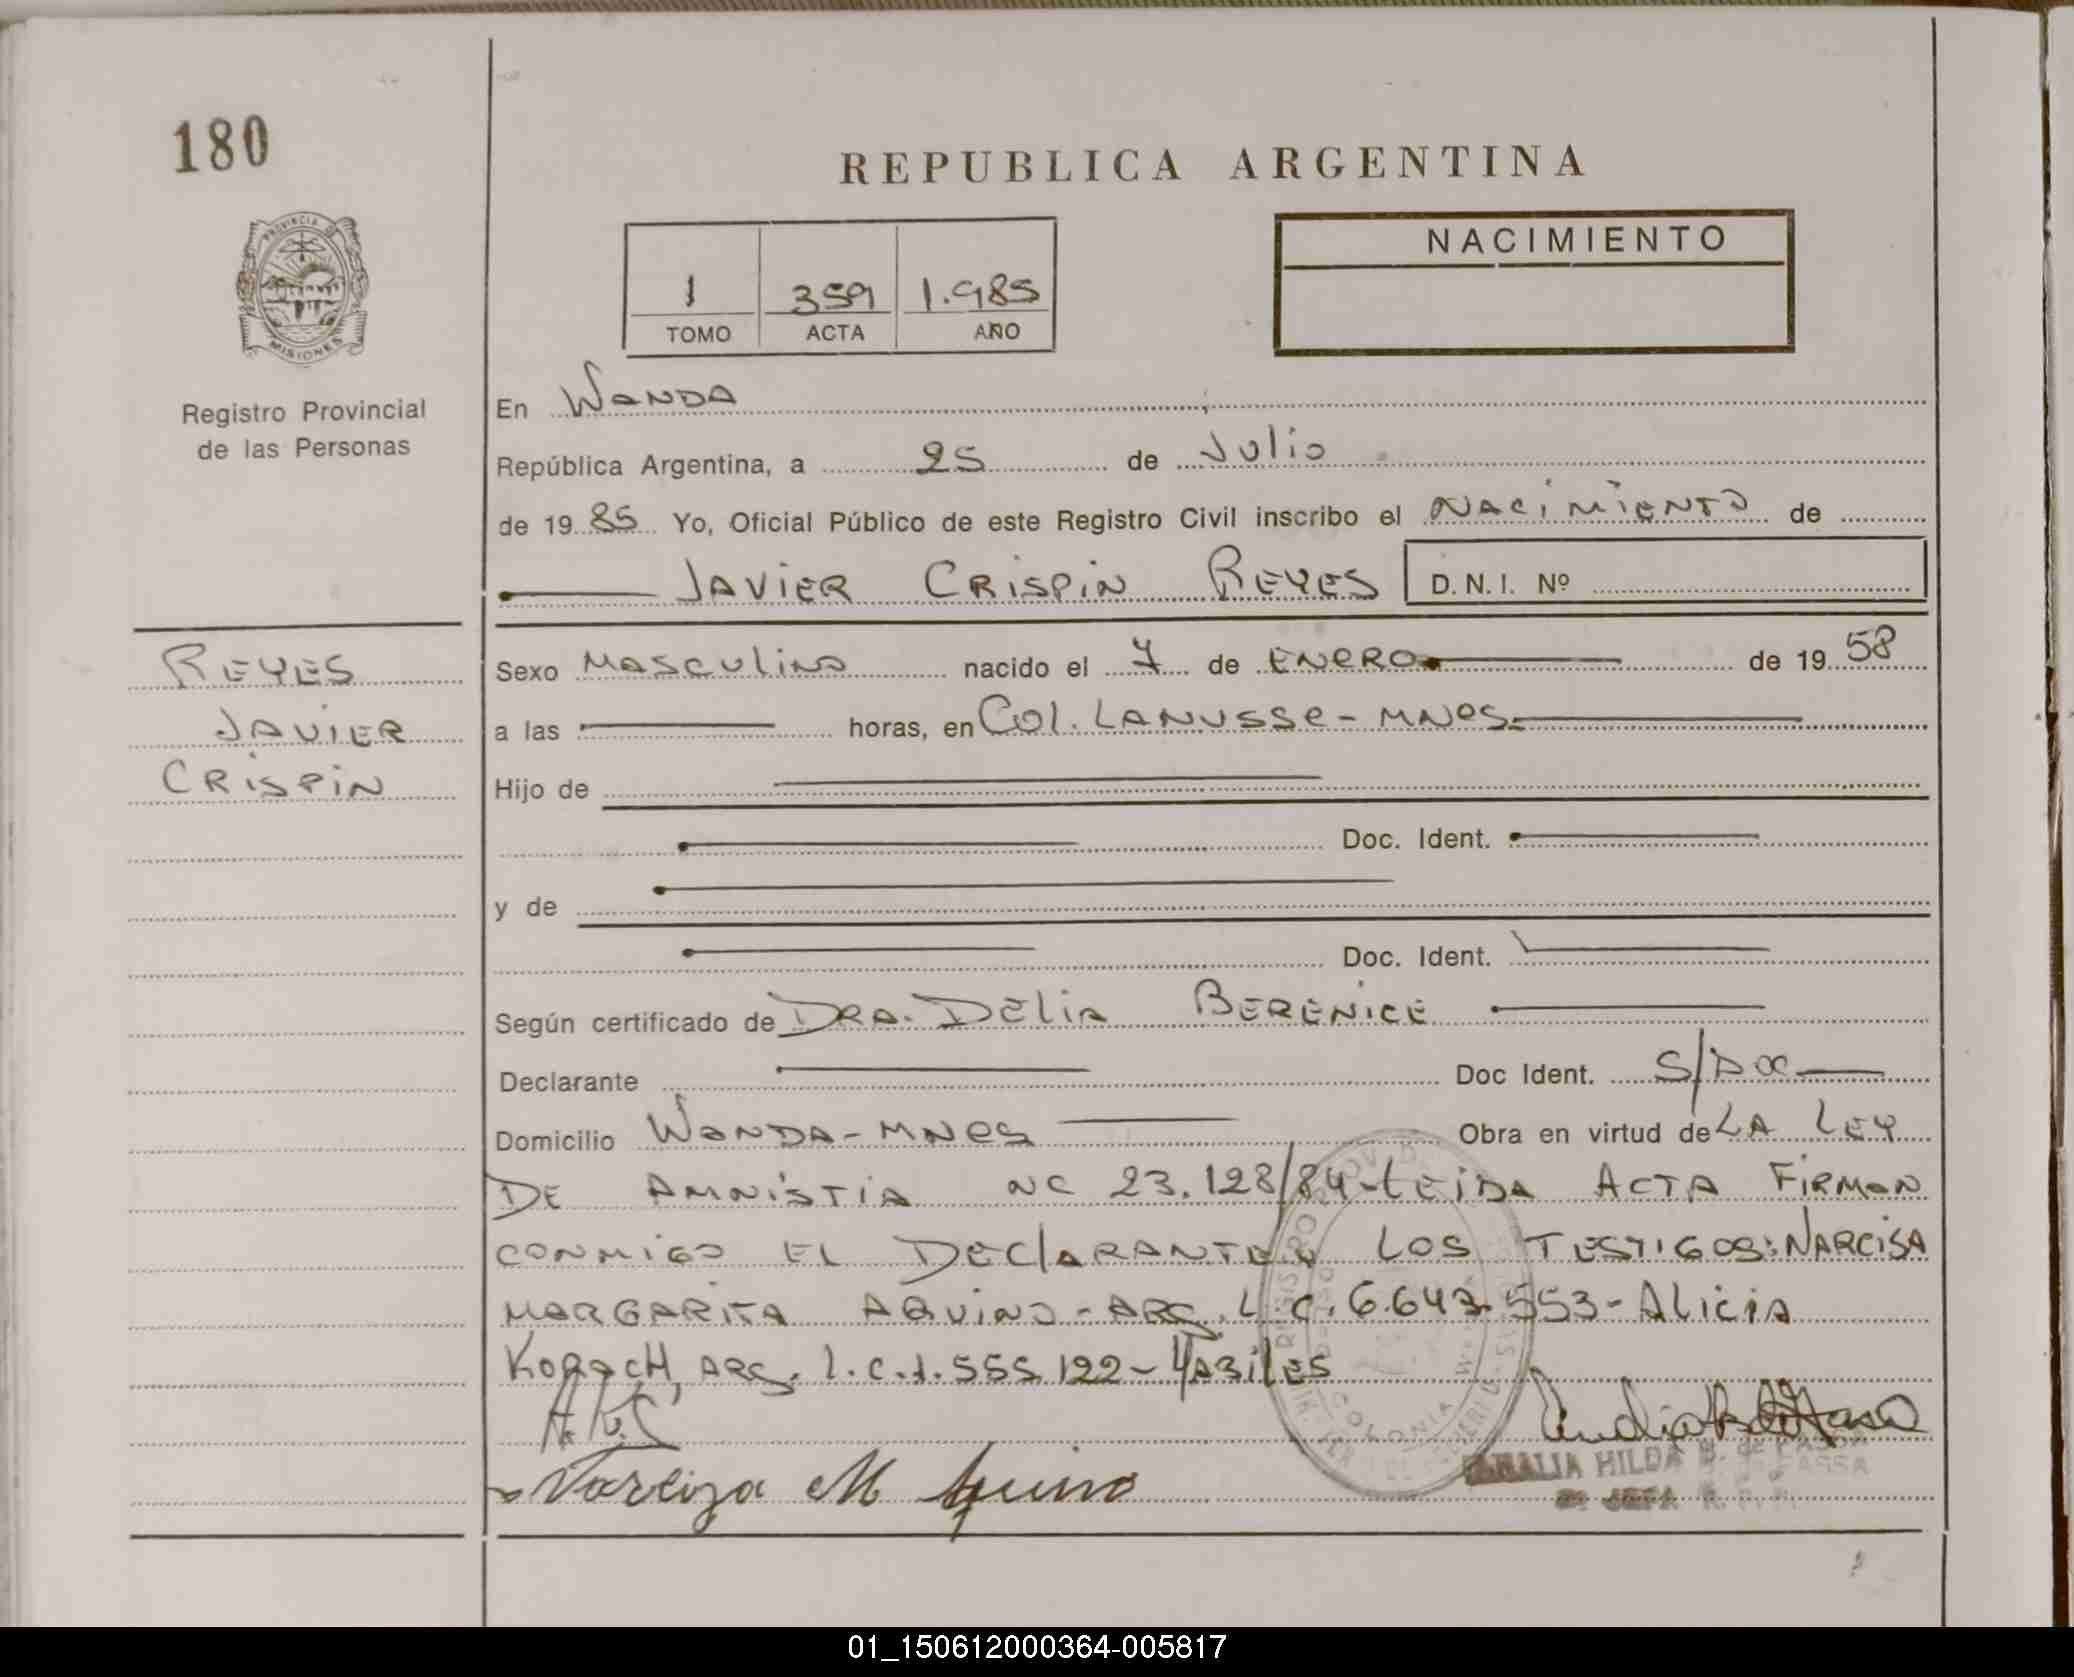 180
REPUBLICA ARGENTINA
PROVINCIA DE
MISIONES
Registro Provincial
de las Personas
1 359 1.985
TOMO ACTA AÑO
NACIMIENTO
En Wanda
República Argentina, a 25 de Julio
de 19 85 Yo, Oficial Público de este Registro Civil inscribo el Nacimiento de
Javier Crispin Reyes D.N.I. Nº
Reyes
Javier
Crispin
Sexo Masculino nacido el 7 de Enero de 19 58
a las horas, en Col. Lanusse - Mnes.
Hijo de
Doc. Ident.
y de
Doc. Ident.
Según certificado de Dra. Delia Berenice
Declarante Doc Ident. S/Doc
Domicilio Wanda - Mnes Obra en virtud de La Ley
De Amnistia Nc 23.128/84 - Leida Acta Firman
conmigo el Declarante y los Testigos: Narcisa
Margarita Aquino - Arg. L.C. 6.643.553 - Alicia
Koroch, Arg. L.C.1.555 122 -
A.K.
Narciza M Aquino
COLONIA W
HILDA B. de
JEFA R. P. P.
01_150612000364-005817